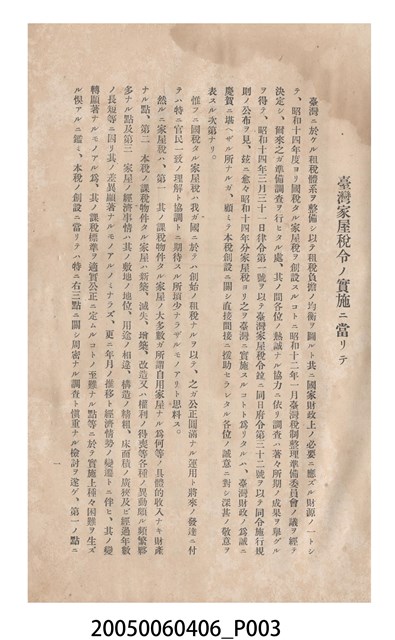 臺灣家屋稅令ノ實施ニ當リテ
臺灣ニ於ケル租稅體系ヲ整備シ以テ租稅負擔ノ均衡ヲ圖ルト共ニ國家財政上ノ必要ニ應ズル財源ノ一トシ
テ、昭和十四年度ヨリ國稅タル家屋稅ヲ創設スルコトニ昭和十二年一月臺灣稅制整理準備委員會ノ議ヲ經テ
決定シ、爾來之ガ準備調査ヲ行ヒタル處、其ノ間各位ノ熱誠ナル協力ニ依リ調査ハ著々所期ノ成果ヲ擧ゲル
ヲ得テ、昭和十四年三月三十一日律令第一號ヲ以テ臺灣家屋稅令竝ニ同日府令第三十二號ヲ以テ同令施行規
則ノ公布ヲ見、玆ニ愈々昭和十四年分家屋稅ヨリ之ヲ臺灣ニ實施スルコトト爲リタルハ、臺灣財政ノ爲誠ニ
慶賀ニ堪ヘザル所アルガ、顧ミテ本稅創設ニ關シ直接間接ニ援助セラレタル各位ノ誠意ニ對シ深甚ノ敬意ヲ
表スル次第ナリ。
惟フニ國稅タル家屋稅ハ我ガ國ニ於テハ創始ノ租稅ナルヲ以テ、之ガ公正圓滿ナル運用ト將來ノ發達ニ付
テハ特ニ官民一致ノ理解ト協調トニ期待スル所頗少ナラザルモノアリト思料ス。
然ルニ家屋稅ハ、第一 其ノ課稅物件タル家屋ノ大多數ガ所謂自用家屋ナル爲何等ノ具體的收入ナキ財產
ナル點、第二 本稅ノ課稅物件タル家屋ハ新築、滅失、增築、改造又ハ權利ノ得喪等各種ノ異動頗ル頻繁夥
多ナル點及第三 家屋ノ經濟事情ハ其ノ敷地ノ地位、用途ノ相違、構造ノ精粗、床面積ノ廣狹及ビ經過年數
ノ長短等ニ因リ其ノ差異顯著ナルモノアルノミナラズ、更ニ年月ノ推移ト經濟情勢ノ變遷トニ伴ヒ、其ノ變
轉顯著ナルモノアル爲、其ノ課稅標準ヲ適實公正ニ定ムルコトノ至難ナル點等ニ於テ實施上種々困難ヲ生ズ
ル惧アルニ鑑ミ、本稅ノ創設ニ當リテハ特ニ右三點ニ關シ周密ナル調査ト愼重ナル檢討ヲ遂ゲ、第一ノ點ニ
一
20050060406_P003